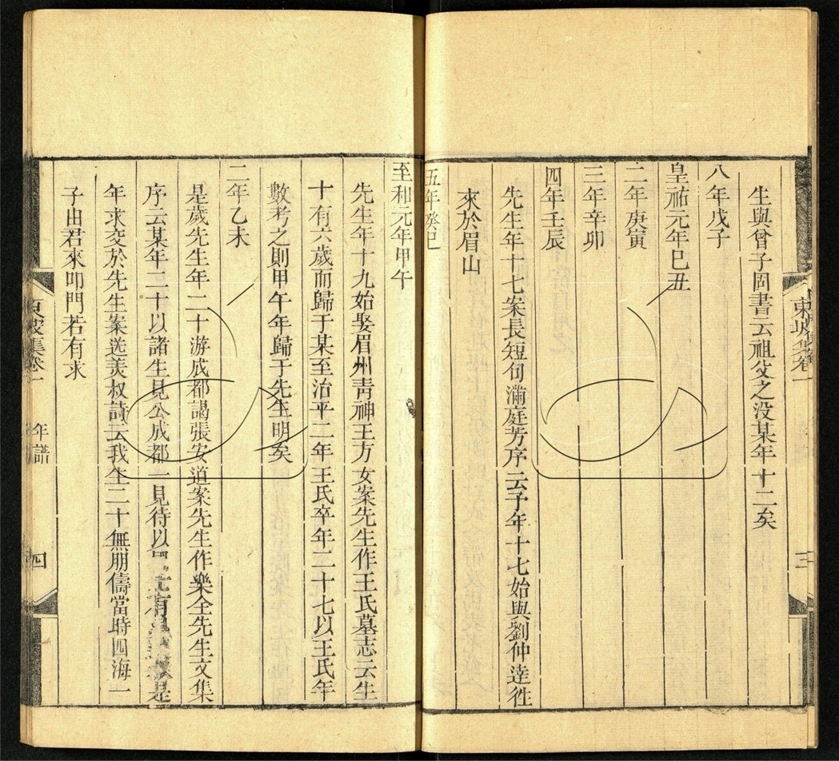 生與曾子固書云祖父之没某年十二矣
八年戊子
皇祐元年巳丑
二年庚寅
三年辛卯
四年壬辰
先生年十七案長短句滿庭芳序云予年十七始與劉仲達徃
來於眉山
五年癸巳
至和元年甲午
先生年十九始娶眉州青神王方女案先生作王氏墓志云生
十有六歲而歸于某至治平二年王氏卒年二十七以王氏年
數考之則甲午年歸于先生明矣
二年乙未
是歲先生年二十游成都謁張安道案先生作樂全先生文集
序云某年二十以諸生見公成都一見待以國士有
年求交於先生案送美叔詩云我生二十無朋儔當時四海一
子由君來叩門若有求
東坡集卷一 年譜 四